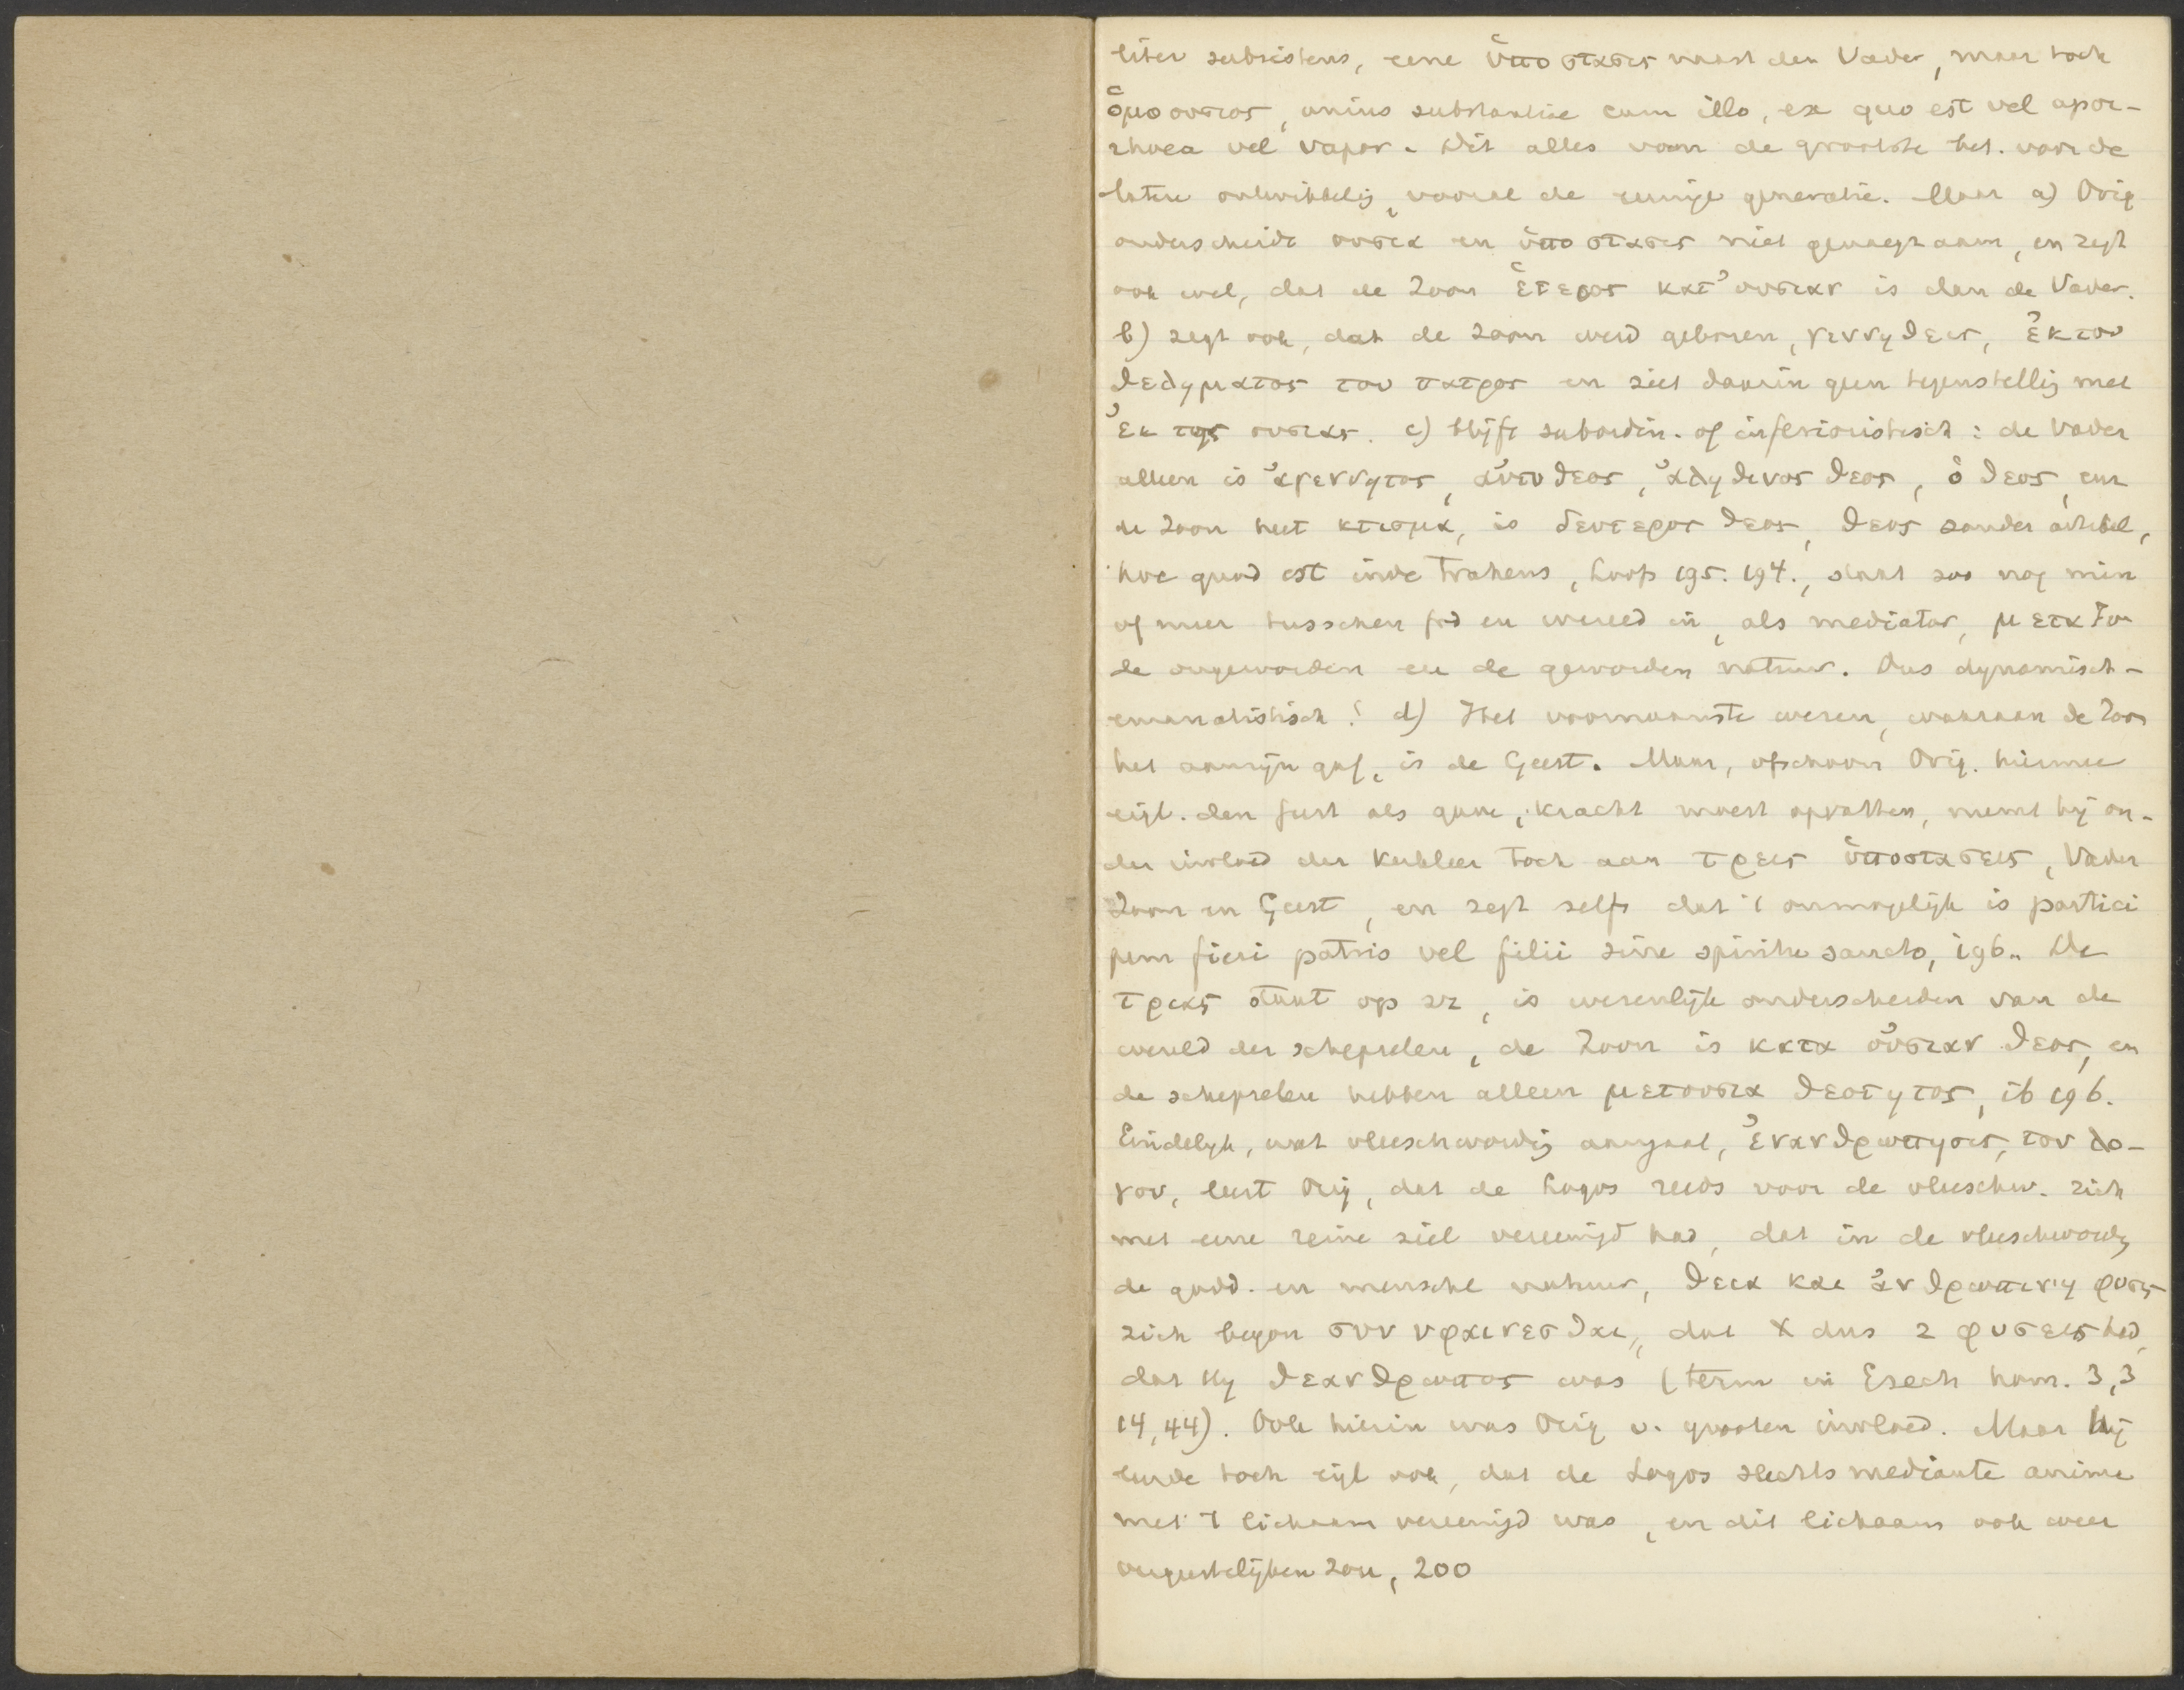 liter subsistens, eene ὑποστασις naast den Vader, maar toch
ὁμοουσιος, unius substantiae cum illo, ex quo est vel apor-
rhoea vel vapor. Dit alles van de grootste bet. voor de
latere ontwikkelg, vooral de eeuwige generatie. Maar a) Orig
onderscheidt ουσια en ὑποστασις niet genoegzaam, en zegt
ook wel, dat de Zoon ἑτερος κατ' ουσιαν is dan de Vader.
b) zegt ook, dat de Zoon werd geboren, γεννηθεις, ἐκ του
θεληματος του πατρος en ziet daarin geen tegenstellig met
ἐκ της ουσιας. c) blijft subordin. of inferioristisch: de Vader
alleen is ἀγεννητος, αὐτοθεος, ἀληθινος θεος, ὁ θεος, en
de Zoon heet κτισμα, is δευτερος θεος, θεος zonder artikel,
hoc quod est inde trahens, Loofs 195. 194., staat zoo nog min
of meer tusschen God en wereld in, als mediator, μεταξυ
de ongeworden en de geworden natuur. Dus dynamisch-
emanatistisch! d) Het voornaamste wezen, waaraan de Zoon
het aanzijn gaf, is de Geest. Maar, ofschoon Orig. hiermee
eigl. den Geest als gave, kracht moest opvatten, neemt hij on-
der invloed der kerkleer toch aan τρεις ὑποστασεις, Vader
Zoon en Geest, en zegt zelfs dat 't onmogelijk is partici
pem fieri patris vel filii sine spiritu sancto, 196. De
τριας staat op zz, is wezenlijk onderscheiden van de
wereld der schepselen, de Zoon is κατα οὐσιαν θεος, en
de schepselen hebben alleen μετουσια θεοτητος, ib 196.
Eindelijk, wat vleeschwordg aangaat, ἐνανθρωπησις, τον λο-
γον, leert Orig, dat de Logos reeds voor de vleeschw. zich
met eene reine ziel vereenigd had, dat in de vleeschwordg
de godd. en menschel natuur, θεια και ἀνθρωπινη φυσις
zich begon συνυφαινεσθαι, dat X dus 2 φυσεις had,
dat Hij θεανθρωπος was (term in Ezech hom. 3,3
14,44). Ook hierin was Orig v. grooten invloed. Maar hij
leerde toch eigl ook, dat de Logos slechts mediante anima
met 't lichaam vereenigd was, en dit lichaam ook weer
vergeestelijken zou, 200